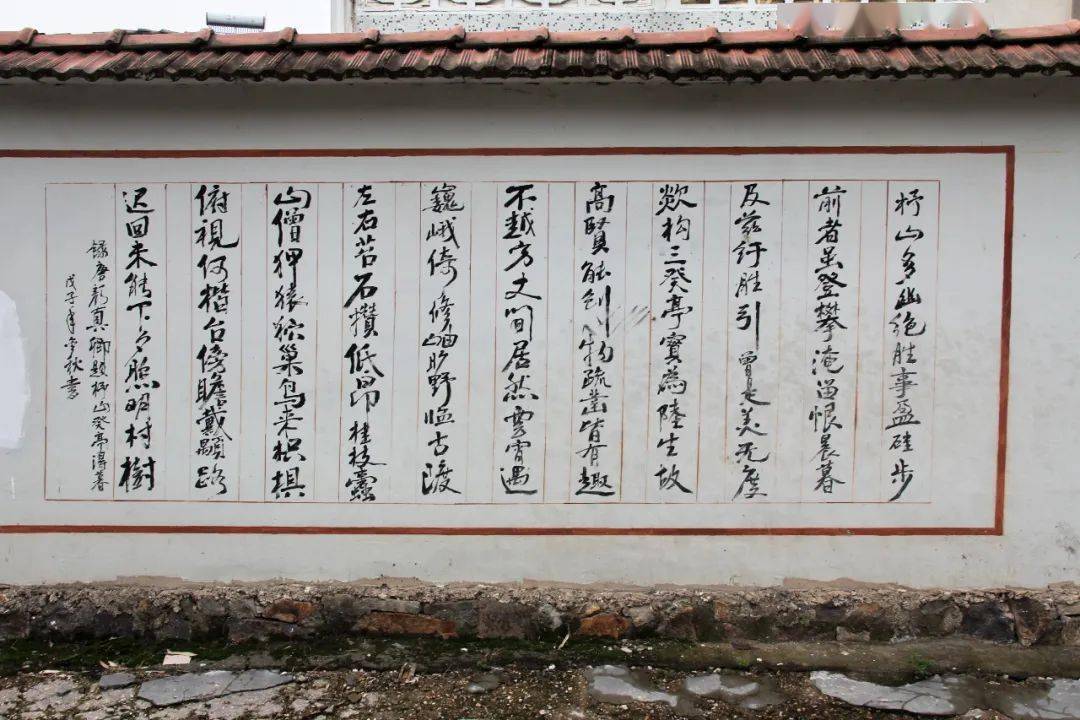 杼山多幽绝胜事盈硅步
前者虽登攀淹留恨晨暮
及兹纡胜引曾是美无度
欻构三癸亭實為陸生故
高賢能创物疏凿皆有趣
不越方丈間居然雲霄遇
巍峨倚修岫旷野临古渡
左右苔石攢低昂桂枝蠹
山僧狎猿狖巢鸟来枳椇
俯視何楷台傍瞻戴顒路
迟回未能下夕照明村樹
錄唐颜真卿題杼山癸亭得暮
戊子年秋書